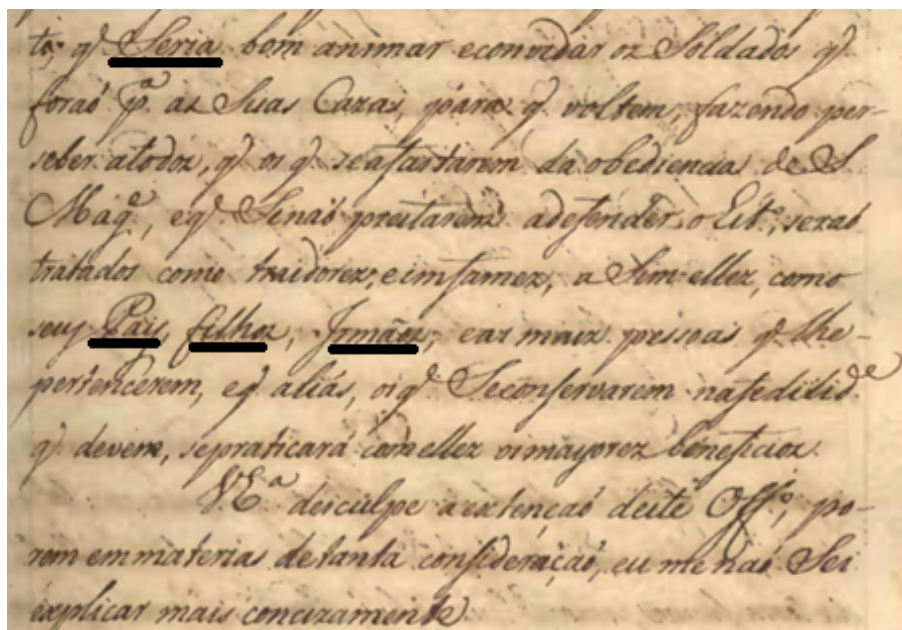 to; q̃ Seria bom animar econvidar oz Soldados q̃
foraõ p.ª az Suas Cazas, para q̃ voltem, fazendo per-
seber atodoz, q̃ os q̃ seafartarem da obediencia de S.
Mag.e, eq̃ Senaõ preitarem adefender o Est.o, seraõ
tratados como traidorez, eimfamez, a Sim ellez, como
seus Pais, filhoz, Irmãos, eaz maiz pessoas q̃ lhe-
pertencerem, eq̃ aliás, oz q̃ Seconservarem nafedilid.e
q̃ devem, sepraticará com ellez oz mayorez beneficioz.
V E.ª desculpe aextençaõ deste Off.o, po-
rem emmateria detanta consideraçaõ, eu me naõ Sei
explicar mais concizamente.